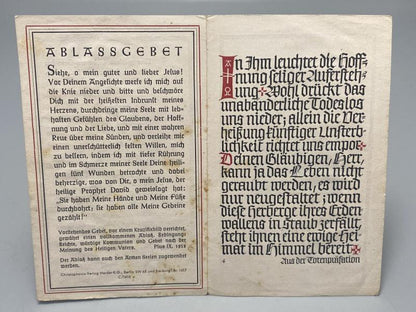 ABLASSGEBET
Siehe, o mein guter und lieber Jesus!
Vor Deinem Angesichte werfe ich mich auf
die Knie nieder und bitte und beschwöre
Dich mit der heißesten Inbrunst meines
Herzens, durchdringe meine Seele mit leb-
haften Gefühlen des Glaubens, der Hoff-
nung und der Liebe, und mit einer wahren
Reue über meine Sünden, und verleihe mir
einen unerschütterlich festen Willen, mich
zu bessern, indem ich mit tiefer Rührung
und im Schmerze meiner Seele Deine heili-
gen fünf Wunden betrachte und dabei
beherzige, was von Dir, o mein Jesus, der
heilige Prophet David geweissagt hat:
„Sie haben Meine Hände und Meine Füße
durchbohrt; sie haben alle Meine Gebeine
gezählt!“
Vorstehendes Gebet, vor einem Kruzifixbild verrichtet,
gewährt einen vollkommenen Ablaß. Bedingung:
Beichte, würdige Kommunion und Gebet nach der
Meinung des Heiligen Vaters. Pius IX. 1858
Der Ablaß kann auch den Armen Seelen zugewendet
werden.
In Ihm leuchtet die Hoff-
nung seliger Aufersteh-
ung. Wohl drückt das
unabänderliche Todeslos
uns nieder; allein die Ver-
heißung künftiger Unsterb-
lichkeit richtet uns empor.
Deinen Gläubigen, Herr,
kann ja das Leben nicht
geraubt werden, es wird
nur neugestaltet; wenn
diese Herberge ihres Erden-
wallens in Staub zerfällt,
steht ihnen eine ewige Hei-
mat im Himmel bereit.
Aus der Totenpräfation